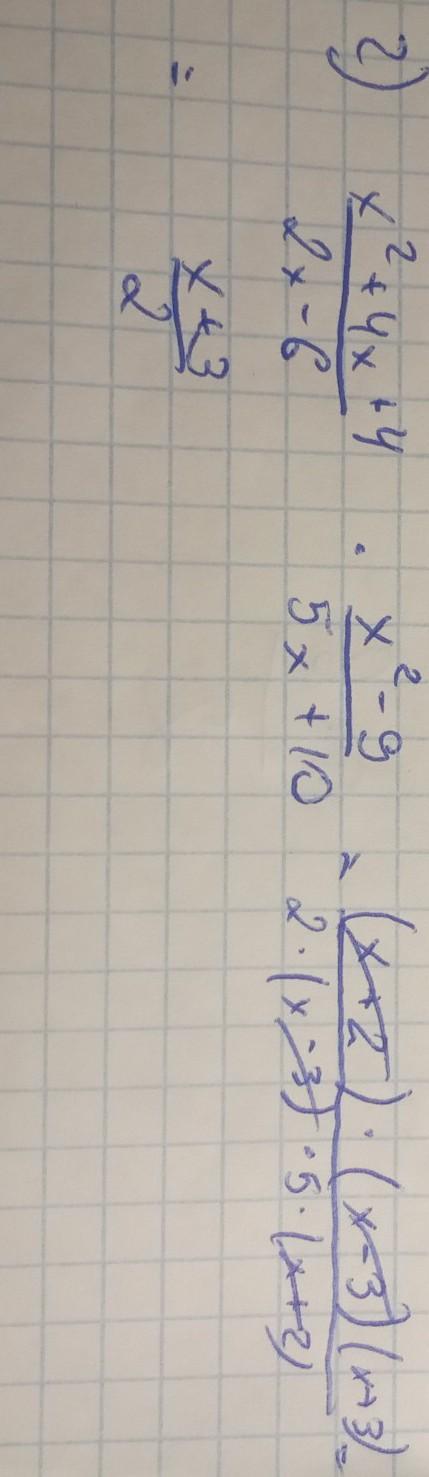 2) (x² + 4x + 4)/(2x - 6) · (x² - 9)/(5x + 10) = ((x + 2) · (x - 3)(x + 3))/(2 · (x - 3) · 5 · (x + 2)) =
= (x + 3)/2